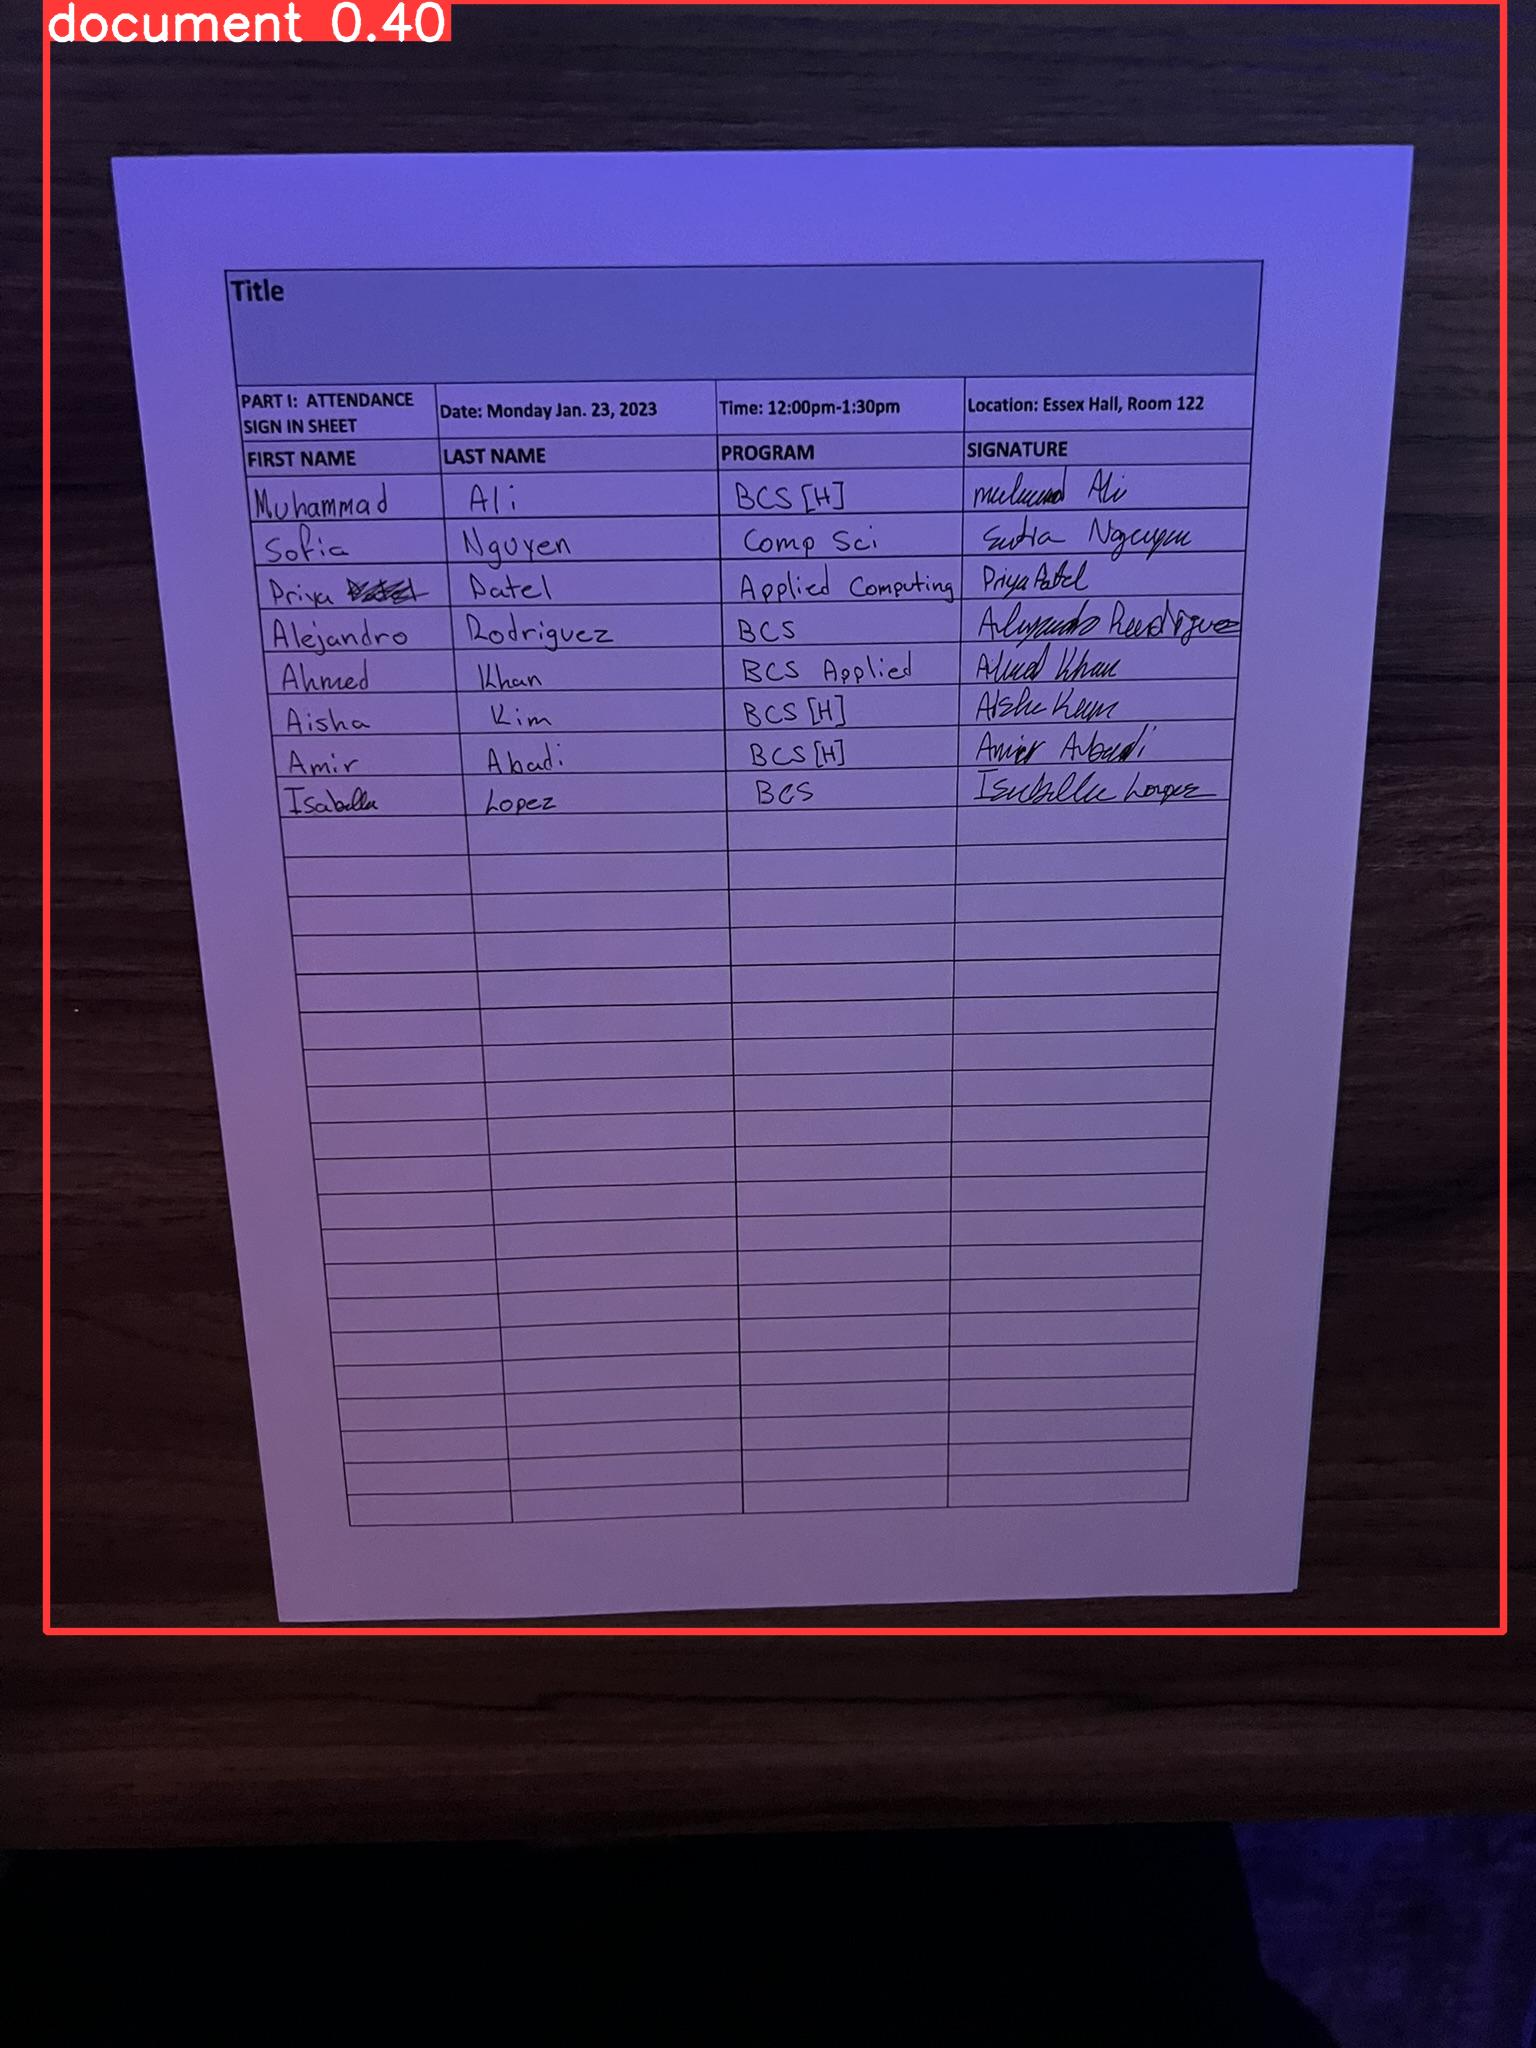 document 0.40
Title
PART I: ATTENDANCE SIGN IN SHEET Date: Monday Jan. 23, 2023 Time: 12:00pm-1:30pm Location: Essex Hall, Room 122
FIRST NAME LAST NAME PROGRAM SIGNATURE
Muhammad Ali BCS [H] Ali
Sofia Nguyen Comp Sci
Priya Patel Applied Computing Priya Patel
Alejandro Rodriguez BCS
Ahmed Khan BCS Applied Khan
Aisha Kim BCS [H]
Amir Abadi BCS [H] Amir Abadi
Isabella Lopez BCS Isabella Lopez